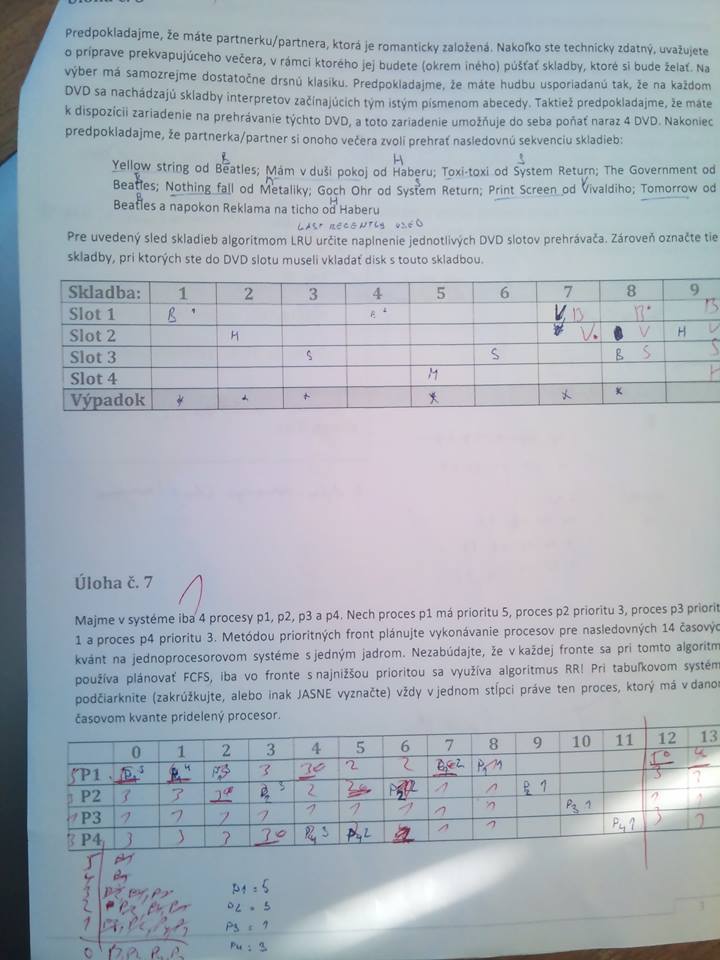 Predpokladajme, že máte partnerku/partnera, ktorá je romanticky založená. Nakoľko ste technicky zdatný, uvažujete
o príprave prekvapujúceho večera, v rámci ktorého jej budete (okrem iného) púšťať skladby, ktoré si bude želať. Na
výber má samozrejme dostatočne drsnú klasiku. Predpokladajme, že máte hudbu usporiadanú tak, že na každom
DVD sa nachádzajú skladby interpretov začínajúcich tým istým písmenom abecedy. Taktiež predpokladajme, že máte
k dispozícii zariadenie na prehrávanie týchto DVD, a toto zariadenie umožňuje do seba poňať naraz 4 DVD. Nakoniec
predpokladajme, že partnerka/partner si onoho večera zvolí prehrať nasledovnú sekvenciu skladieb:
B H S
Yellow string od Beatles; Mám v duši pokoj od Haberu; Toxi-toxi od System Return; The Government od
Beatles; Nothing fall od Metaliky; Goch Ohr od System Return; Print Screen od Vivaldiho; Tomorrow od
Beatles a napokon Reklama na ticho od Haberu
LAST RECENTLY USED
Pre uvedený sled skladieb algoritmom LRU určite naplnenie jednotlivých DVD slotov prehrávača. Zároveň označte tie
skladby, pri ktorých ste do DVD slotu museli vkladať disk s touto skladbou.
Skladba: 1 2 3 4 5 6 7 8 9
Slot 1 B B V B B B
Slot 2 H V V H V
Slot 3 S S B S S
Slot 4 M H
Výpadok * * * * * *
Úloha č. 7
Majme v systéme iba 4 procesy p1, p2, p3 a p4. Nech proces p1 má prioritu 5, proces p2 prioritu 3, proces p3 priorit
1 a proces p4 prioritu 3. Metódou prioritných front plánujte vykonávanie procesov pre nasledovných 14 časovýc
kvánt na jednoprocesorovom systéme s jedným jadrom. Nezabúdajte, že v každej fronte sa pri tomto algoritm
používa plánovač FCFS, iba vo fronte s najnižšou prioritou sa využíva algoritmus RR! Pri tabuľkovom systém
podčiarknite (zakrúžkujte, alebo inak JASNE vyznačte) vždy v jednom stĺpci práve ten proces, ktorý má v dano
časovom kvante pridelený procesor.
0 1 2 3 4 5 6 7 8 9 10 11 12 13
5 P1 3 2 2 P1 1
3 P2 3 3 2 1 1 P2 1
1 P3 1 1 1 1 1 1 1 1 1 P3 1
3 P4 3 3 3 P4 3 P4 2 1 1 P4 1
5 P1
4 P1
3
2
1
0
P1 = 5
P2 = 3
P3 = 1
P4 = 3